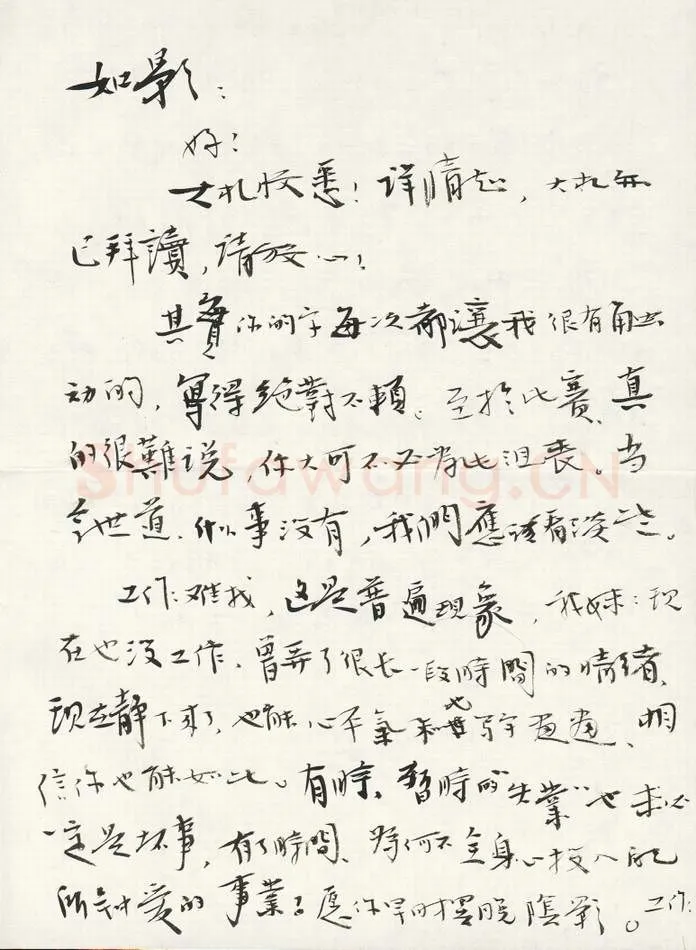 如影：
好！
大札收悉！详情知，大札每
已拜讀，请放心！
其實你的字每次都讓我很有触
动的，寫得絕對不賴。至於比赛、真
的很難说，你大可不必為此沮丧。当
今世道、什么事没有，我們應该看淡些。
工作难找，这是普遍现象，我妹妹现
在也没工作，曾弄了很长一段時間的情绪，
现在静下来了，也能心平氣和地写字画画、相
信你也能如此。有時、暂時的"失業"也未必
一定是坏事，有了時間、為何不全身心投入
所钟爱的事業？愿你早时摆脱陰影。工作
Shufawang.CN